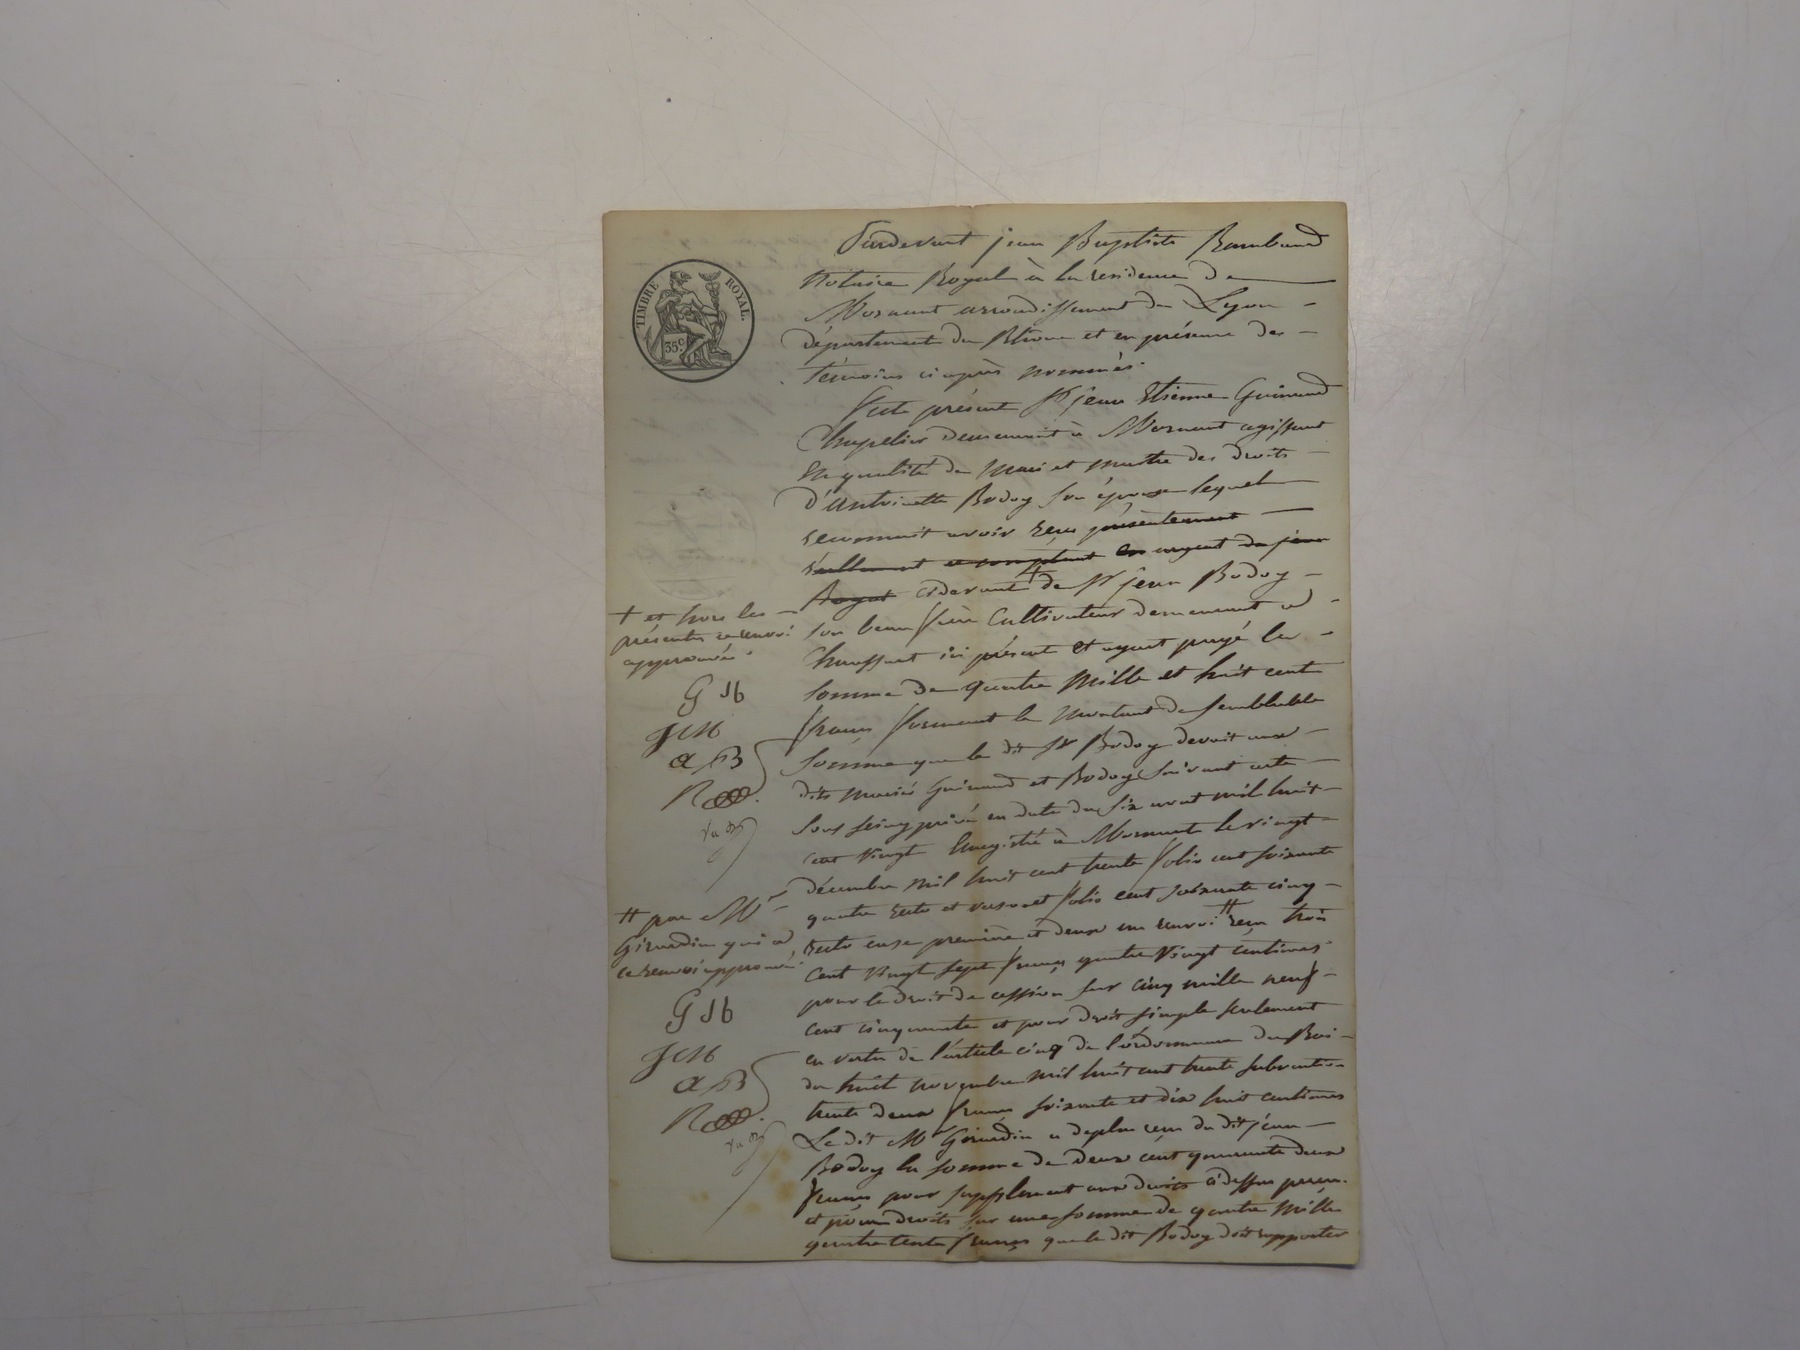 TIMBRE ROYAL.
35c
Pardevant jean Baptiste Rambaud
Notaire Royal à la residence de
Mornant arrondissement de Lyon
département du Rhône et en présence des
témoins ciaprès nommés
fut présent Sr jean Etienne Guinand
Chapelier demeurant à Mornant agissant
En qualité de mari et maitre des droits
d'Antoinette Bodoy son épouse lequel
reconnait avoir reçu présentement
réellement et comptant en argent du jour
Royal cidevant + de Sr jean Bodoy
son beau frère Cultivateur demeurant à
Chaussant ici présent et ayant payé la
somme de quatre Mille et huit cent
francs formant le montant de semblable
Somme que le dit Sr Bodoy devait aux
dits mariés Guinand et Bodoy suivant acte
sous seing privé en date du six aout mil huit
cent vingt Enregistré à Mornant le vingt
décembre mil huit cent trente folio cent soixante
quatre recto et verso et folio cent soixante cinq
recto case première et deux un renvoi # reçu trois
cent vingt sept francs quatre vingt centimes
pour le droit de cession sur cinq mille neuf
cent cinquante et pour droit simple seulement
en vertu de l'article cinq de l'ordonnance du Roi
du huit novembre mil huit cent trente subvention
trente deux francs soixante et dix huit centimes
Le dit Mr Girardin a deplus reçu du dit jean
Bodoy la somme de deux cent quarante deux
francs pour supplement aux droits cidessus perçu
et pour droits sur une somme de quatre mille
quatre cents francs que le dit Bodoy doit rapporter
+ et hors les
présentes ce renvoi
approuvé
G J B
J C M
A B
R
# par Mr
Girardin qui a
ce renvoi approuvé
G J B
J C M
A B
R